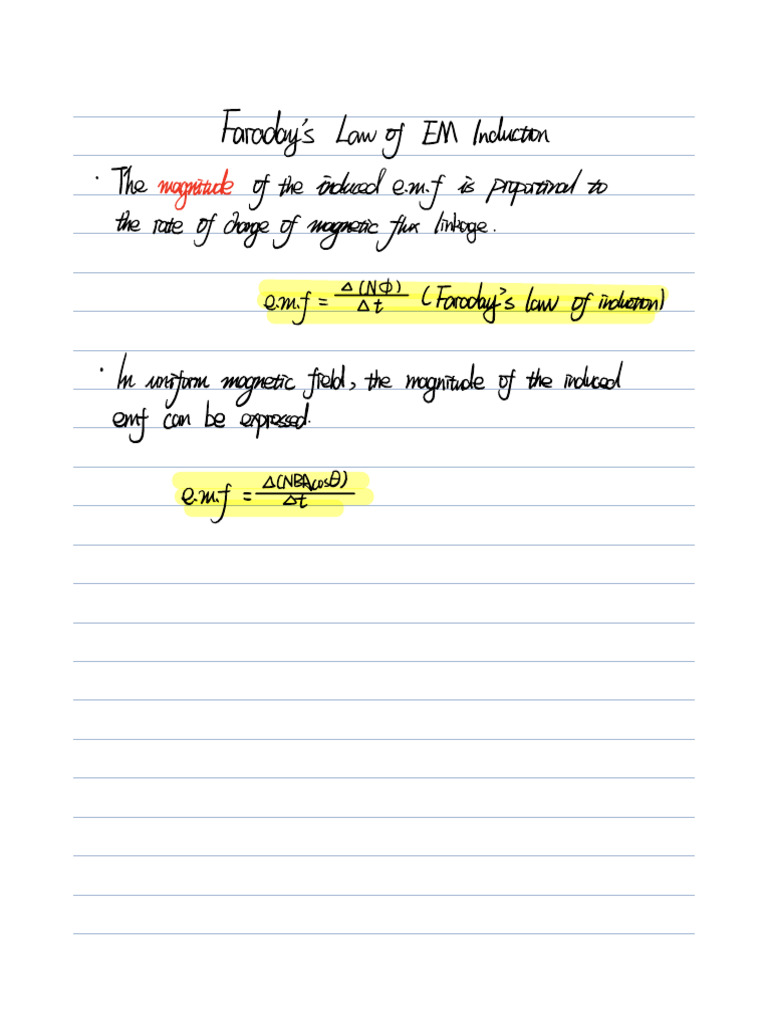 Faraday's Law of EM Induction
· The magnitude of the induced e.m.f is proportional to
the rate of change of magnetic flux linkage.
e.m.f = Δ(NΦ)/Δt (Faraday's law of induction)
· In uniform magnetic field, the magnitude of the induced
emf can be expressed.
e.m.f = Δ(NBAcosθ)/Δt